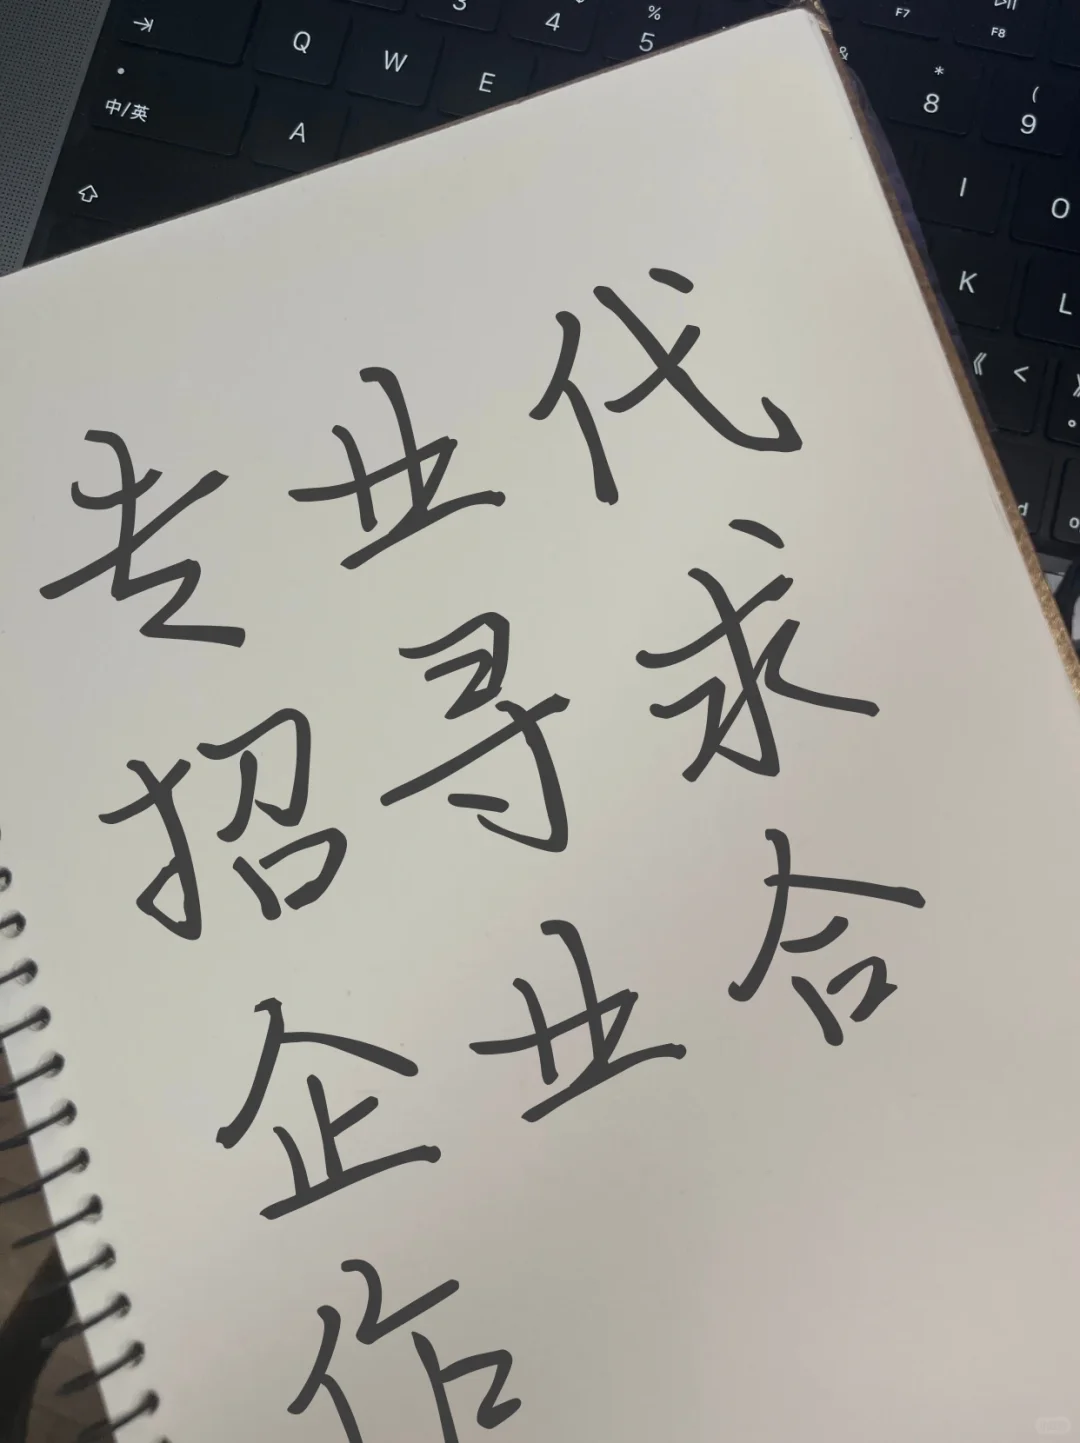 →|
Q W E
3 4 % 5
F7
F8
&
* 8
( 9
中/英
A
I O
K L
《 <
专业代
招寻求
企业合
作